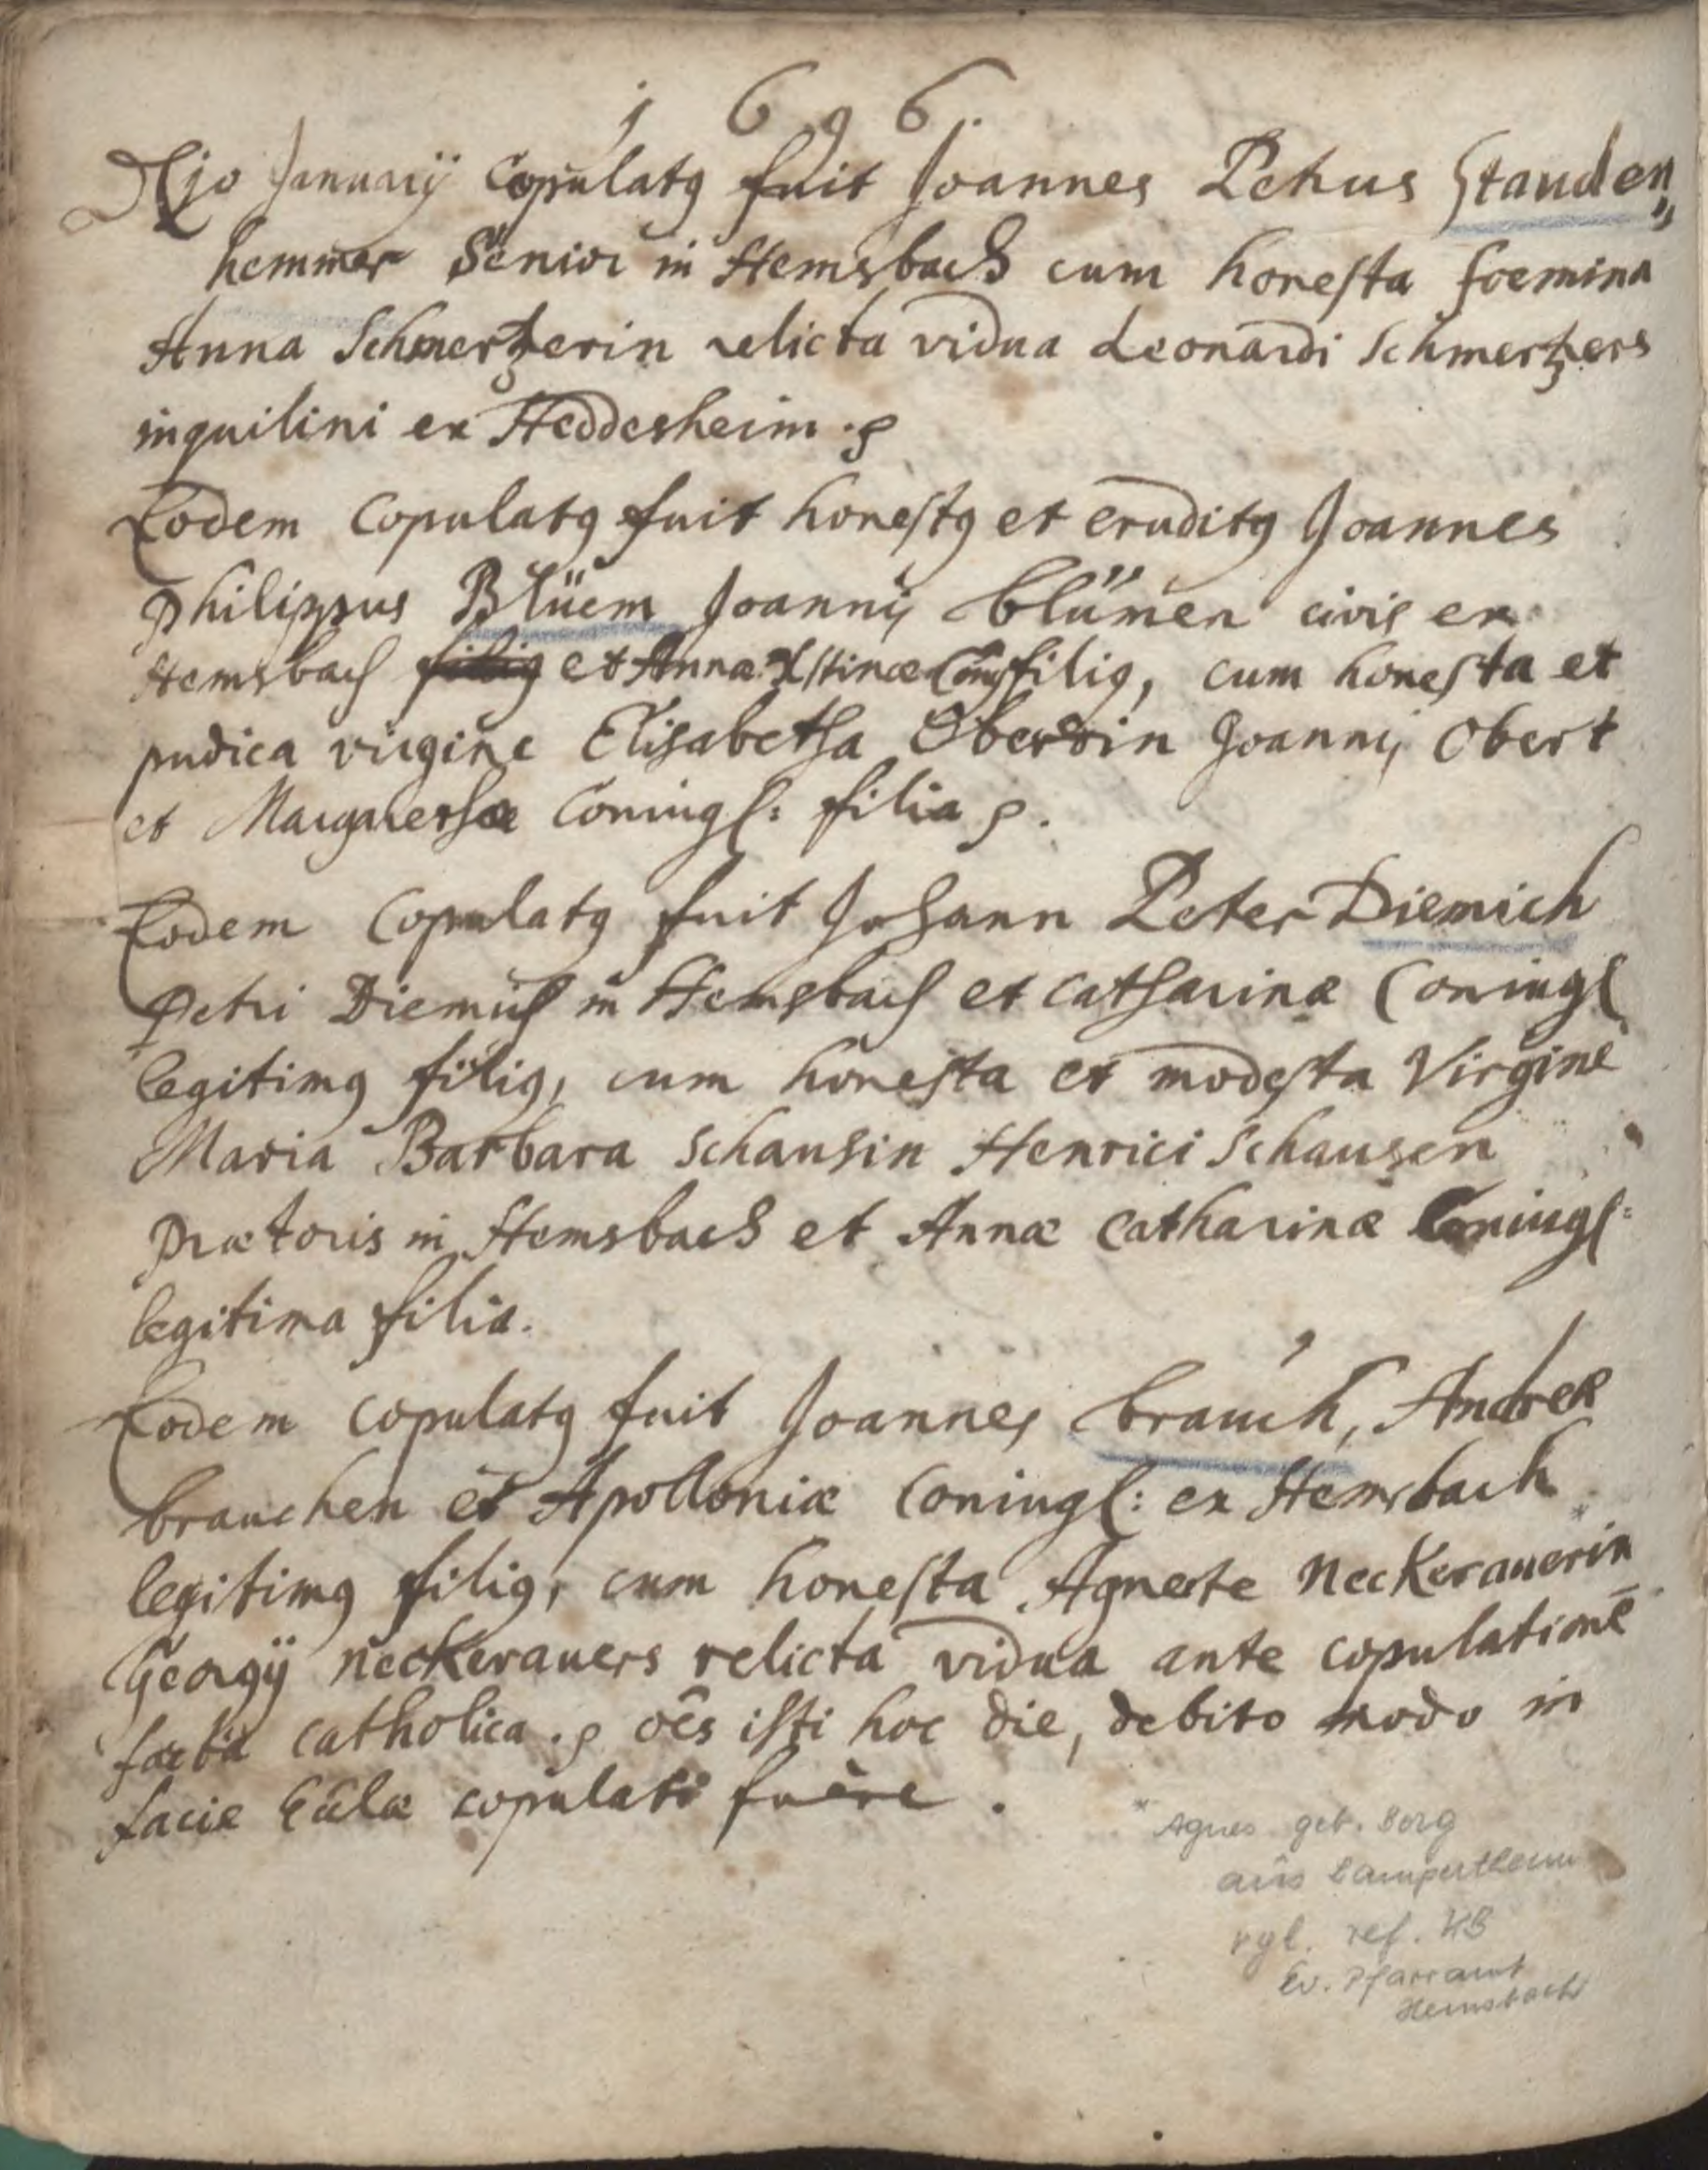 1696.
January Copulatꝯ fuit Joannes Petrus Stauden„
hemmer Senior in Hemsbach cum honesta foemina
Anna Schmertzerin relicta vidua Leonardi Schmertzers
inquilini ex Heddesheim.
Eodem Copulatꝯ fuit honestꝯ et eruditꝯ Joannes
Philippus Blüem Joannis blümen civis ex
Hemsbach filiꝯ et Annæ Xstinæ filiꝯ, cum honesta et
pudica virgine Elisabetha Obertin Joannis Obert
et Margarethæ Coniugl: filia.
Eodem Copulatꝯ fuit Johann Peter Diemich
Petri Diemich in Hemsbach et Catharinæ Coniugl
legitimꝯ filiꝯ, cum honesta et modesta Virgine
Maria Barbara Schausin Henrici Schausen
prætoris in Hemsbach et Annæ Catharinæ Coniugl:
legitima filia.
Eodem copulatꝯ fuit Joannes brauch, Andreæ
brauchen et Apolloniæ Coniugl: ex Hemsbach
legitimꝯ filiꝯ, cum honesta Agnete Neckerauerin *
Georgÿ Neckerauers relicta vidua ante copulationē
facta catholica. oēs isti hoc die, debito modo in
facie Ecclæ copulati fuère.
* Agnes geb. Borg
aus Lampertheim
vgl. ref. KB
Ev. Pfarramt
Hemsbach